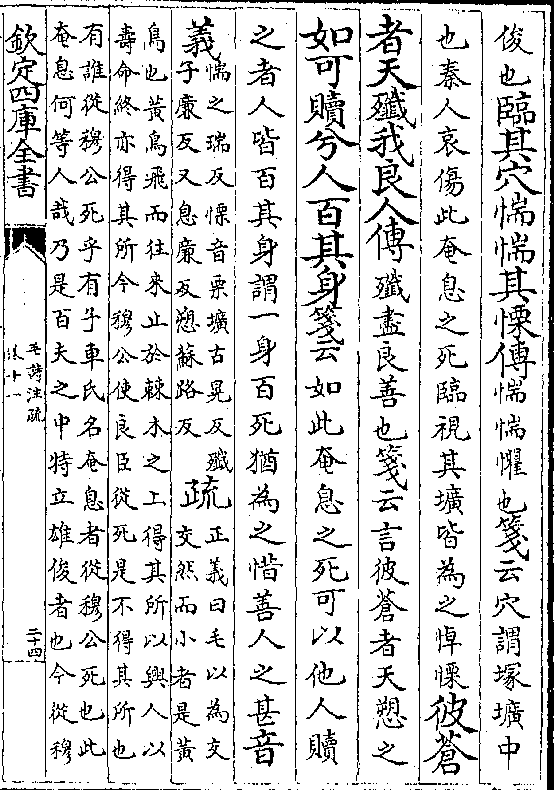 俊也臨其穴惴惴其慄傳惴惴懼也箋云穴謂塚壙中
也秦人哀傷此奄息之死臨視其壙皆為之悼慄彼蒼
者天殲我良人傳殲盡良善也箋云言彼蒼者天愬之
如可贖兮人百其身箋云如此奄息之死可以他人贖
之者人皆百其身謂一身百死猶為之惜善人之甚音
義
惴之瑞反慄音栗壙古晃反殲
子廉反又息廉反愬蘇路反
疏
正義曰毛以為交
交然而小者是黃
鳥也黃鳥飛而往來止於棘木之上得其所以興人以
壽命終亦得其所今穆公使良臣從死是不得其所也
有誰從穆公死乎有子車氏名奄息者從穆公死也此
奄息何等人哉乃是百夫之中特立雄俊者也今從穆
欽定四庫全書
毛詩注疏
卷十一
二十四